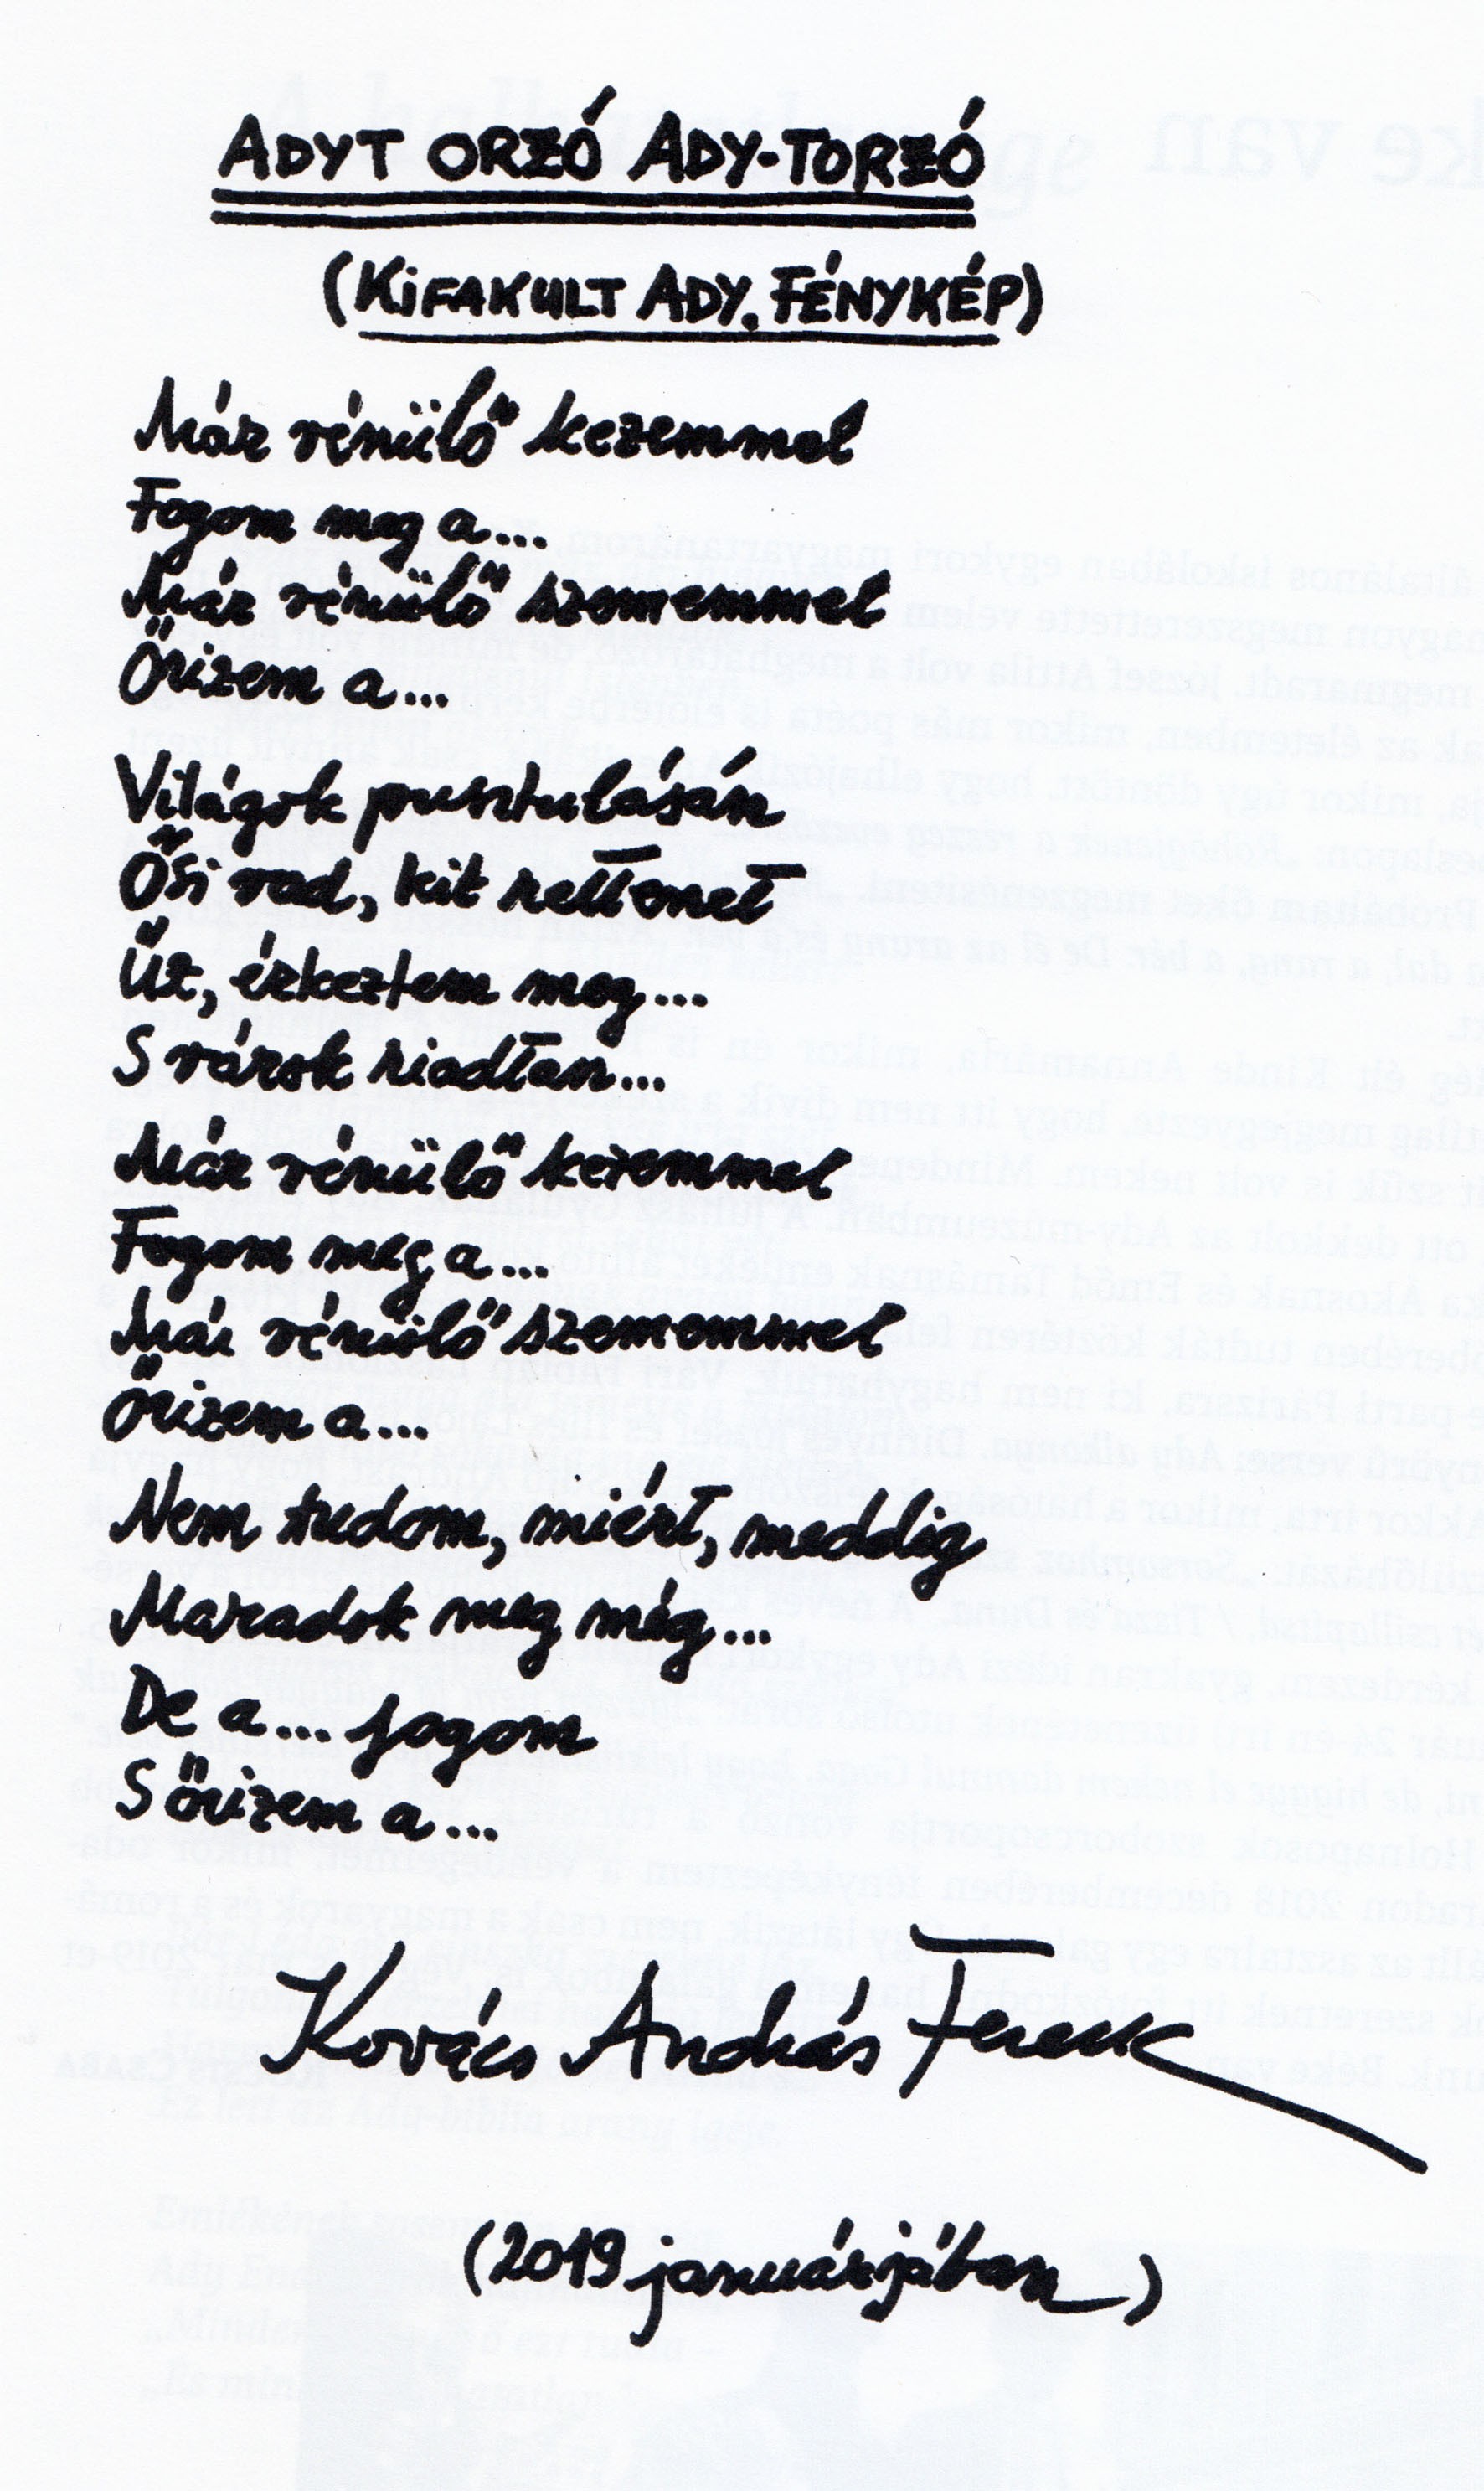 ADYT ORZÓ ADY-TORZÓ
(KIFAKULT ADY. FÉNYKÉP)
Már vénülő kezemmel
Fogom meg a...
Már vénülő szememmel
Őrizem a...
Világok pusztulásán
Ősi vad, kit rettenet
Űz, érkeztem meg...
S várok riadtan...
Már vénülő kezemmel
Fogom meg a...
Már vénülő szememmel
Őrizem a...
Nem tudom, miért, meddig
Maradok meg még...
De a... fogom
S őrizem a...
Kovács András Ferenc
(2019 januárjában)